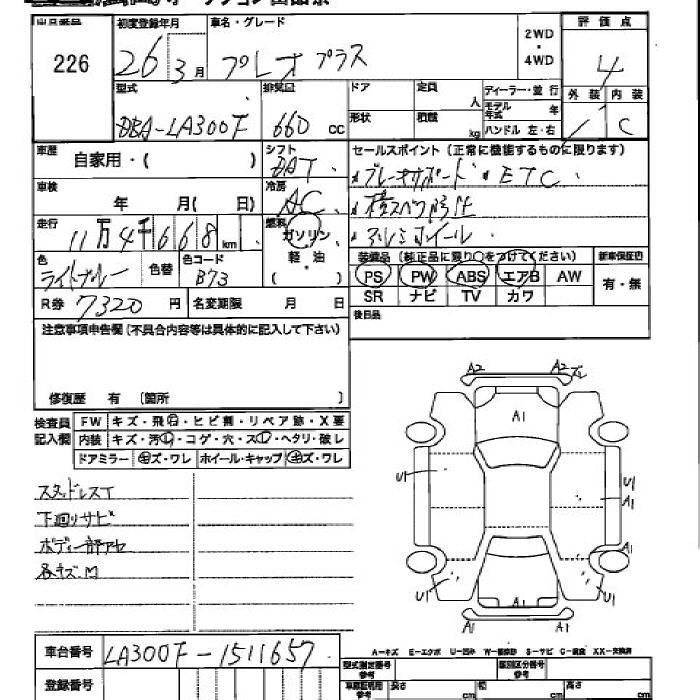 オークション出品票
出品番号 226
初度登録年月 26 3月
車名・グレード プレオ プラス
2WD ・ 4WD
評価点 4
外装 内装 C
型式 DBA-LA300F
排気量 660 cc
ドア 定員 人
形状 積載 kg
ディーラー・並行
モデル年式 年
ハンドル 左・右
車歴 自家用・( )
シフト
冷房 AC
セールスポイント(正常に機能するものに限ります)
ブレーキサポート ETC
横スベリ防止
アルミホイール
車検 年 月( 日)
走行 11万4千668km
燃料 ガソリン・軽油 ( )
色 ライトブルー
色替
色コード B73
装備品(純正品に限り○をつけてください)
新車保証書 有・無
PS PW ABS エアB AW
SR ナビ TV カワ
R券 7320円
名変期限 月 日
後日品
注意事項申告欄(不具合内容等は具体的に記入して下さい)
修復歴 有 〔箇所 〕
検査員記入欄
FW キズ・飛石・ヒビ割・リペア跡・X要
内装 キズ・汚れ・コゲ・穴・スレ・ヘタリ・破レ
ドアミラー キズ・ワレ ホイール・キャップ キズ・ワレ
スタッドレスT
下廻リサビ
ボディ一部アセ
各キズ.M
A2 A2
A1
U1 U1
A1
A1
U1 U1
A1
A2
A-キズ E-エクボ U-凹み W-板跡 S-サビ C-腐食 XX-交換済
車台番号 LA300F-1511657
登録番号
型式指定番号参考
類別区分番号参考
車庫証明用参考 長さ cm 幅 cm 高さ cm